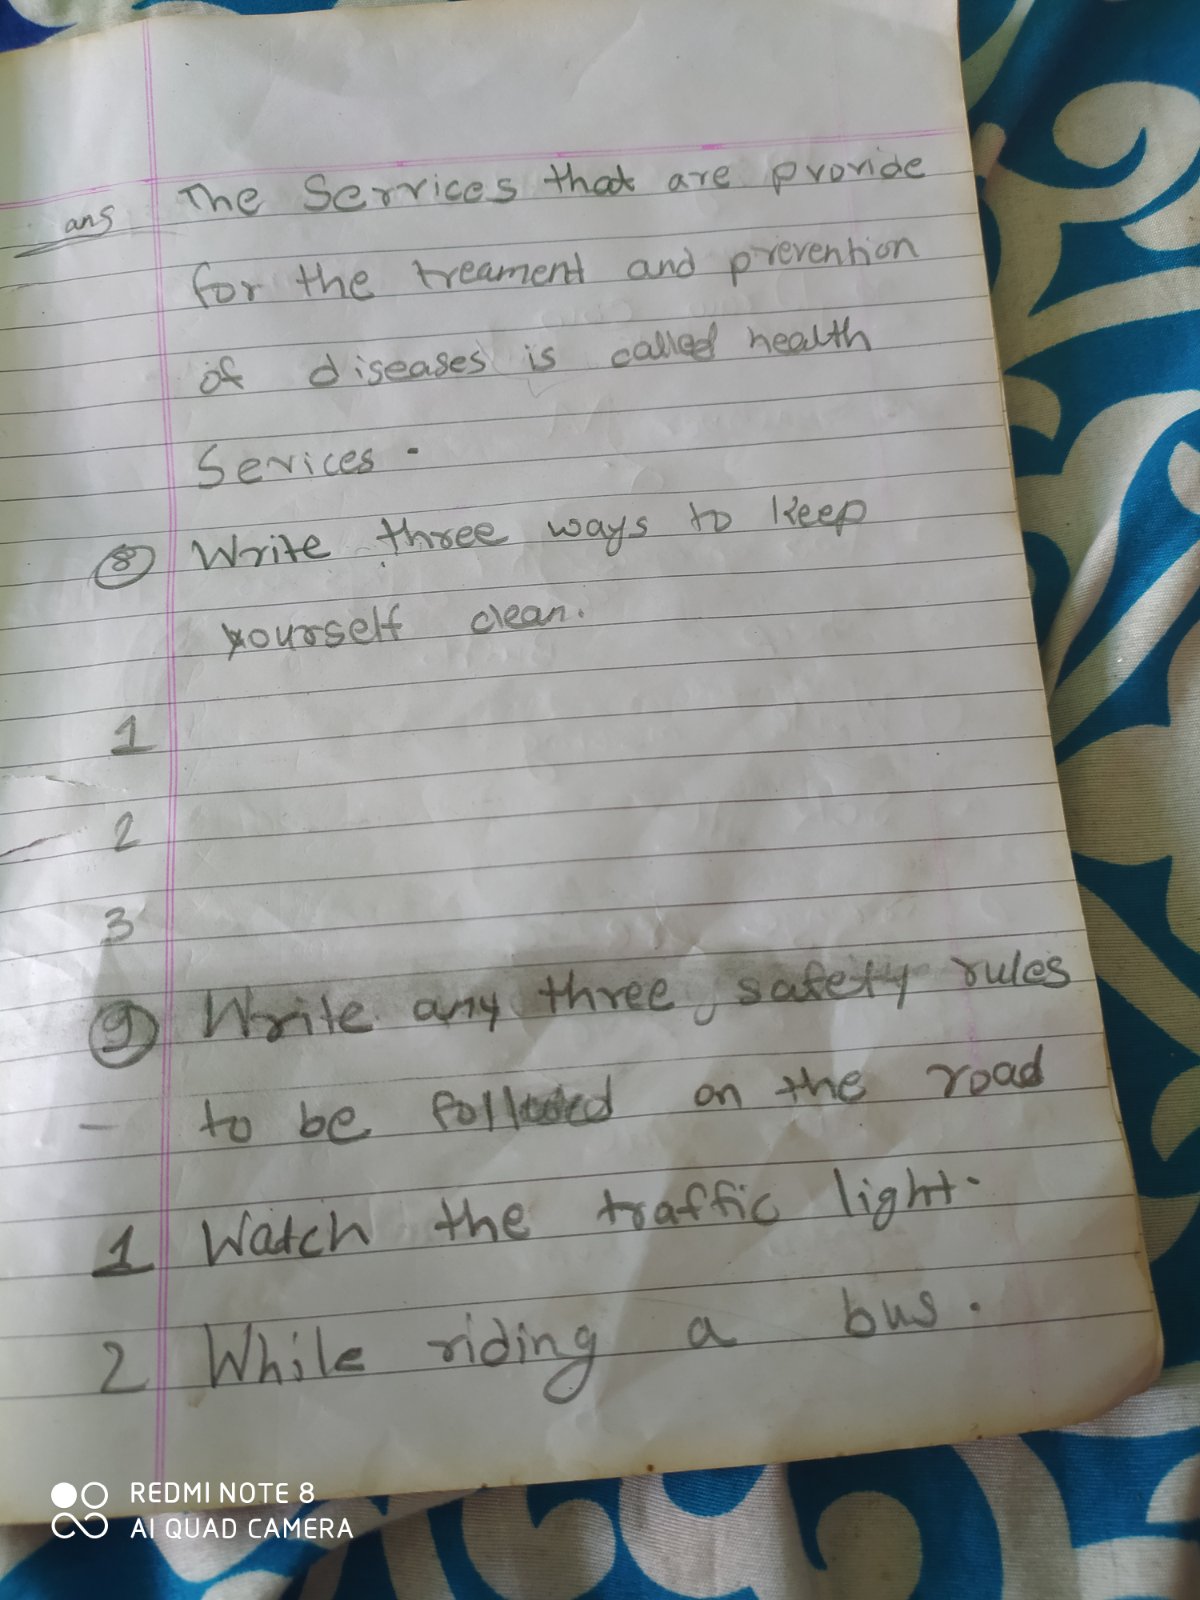 ans The Services that are provide
for the treament and prevention
of diseases is called health
Sevices.
8 Write three ways to keep
yourself clean.
1
2
3
9 Write any three, safety rules
to be on the road
1 Watch the traffic light.
2 While riding a bus.
REDMI NOTE 8
AI QUAD CAMERA